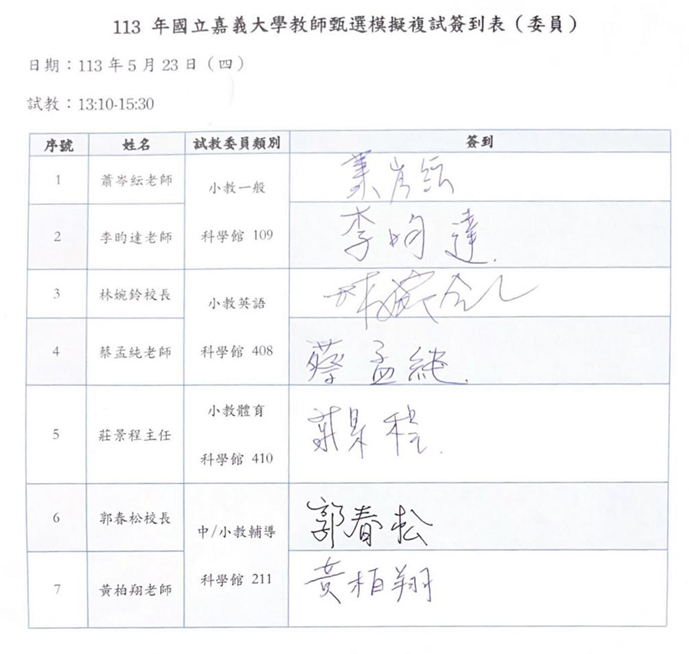 113 年國立嘉義大學教師甄選模擬複試簽到表（委員）
日期：113 年 5 月 23 日（四）
試教：13:10-15:30
序號 姓名 試教委員類別 簽到
1 蕭岑紜老師 小教一般 科學館 109
2 李昀達老師 李昀達
3 林婉鈴校長 小教英語 科學館 408
4 蔡孟純老師 蔡孟純
5 莊景程主任 小教體育 科學館 410
6 郭春松校長 中/小教輔導 科學館 211 郭春松
7 黃柏翔老師 黃柏翔